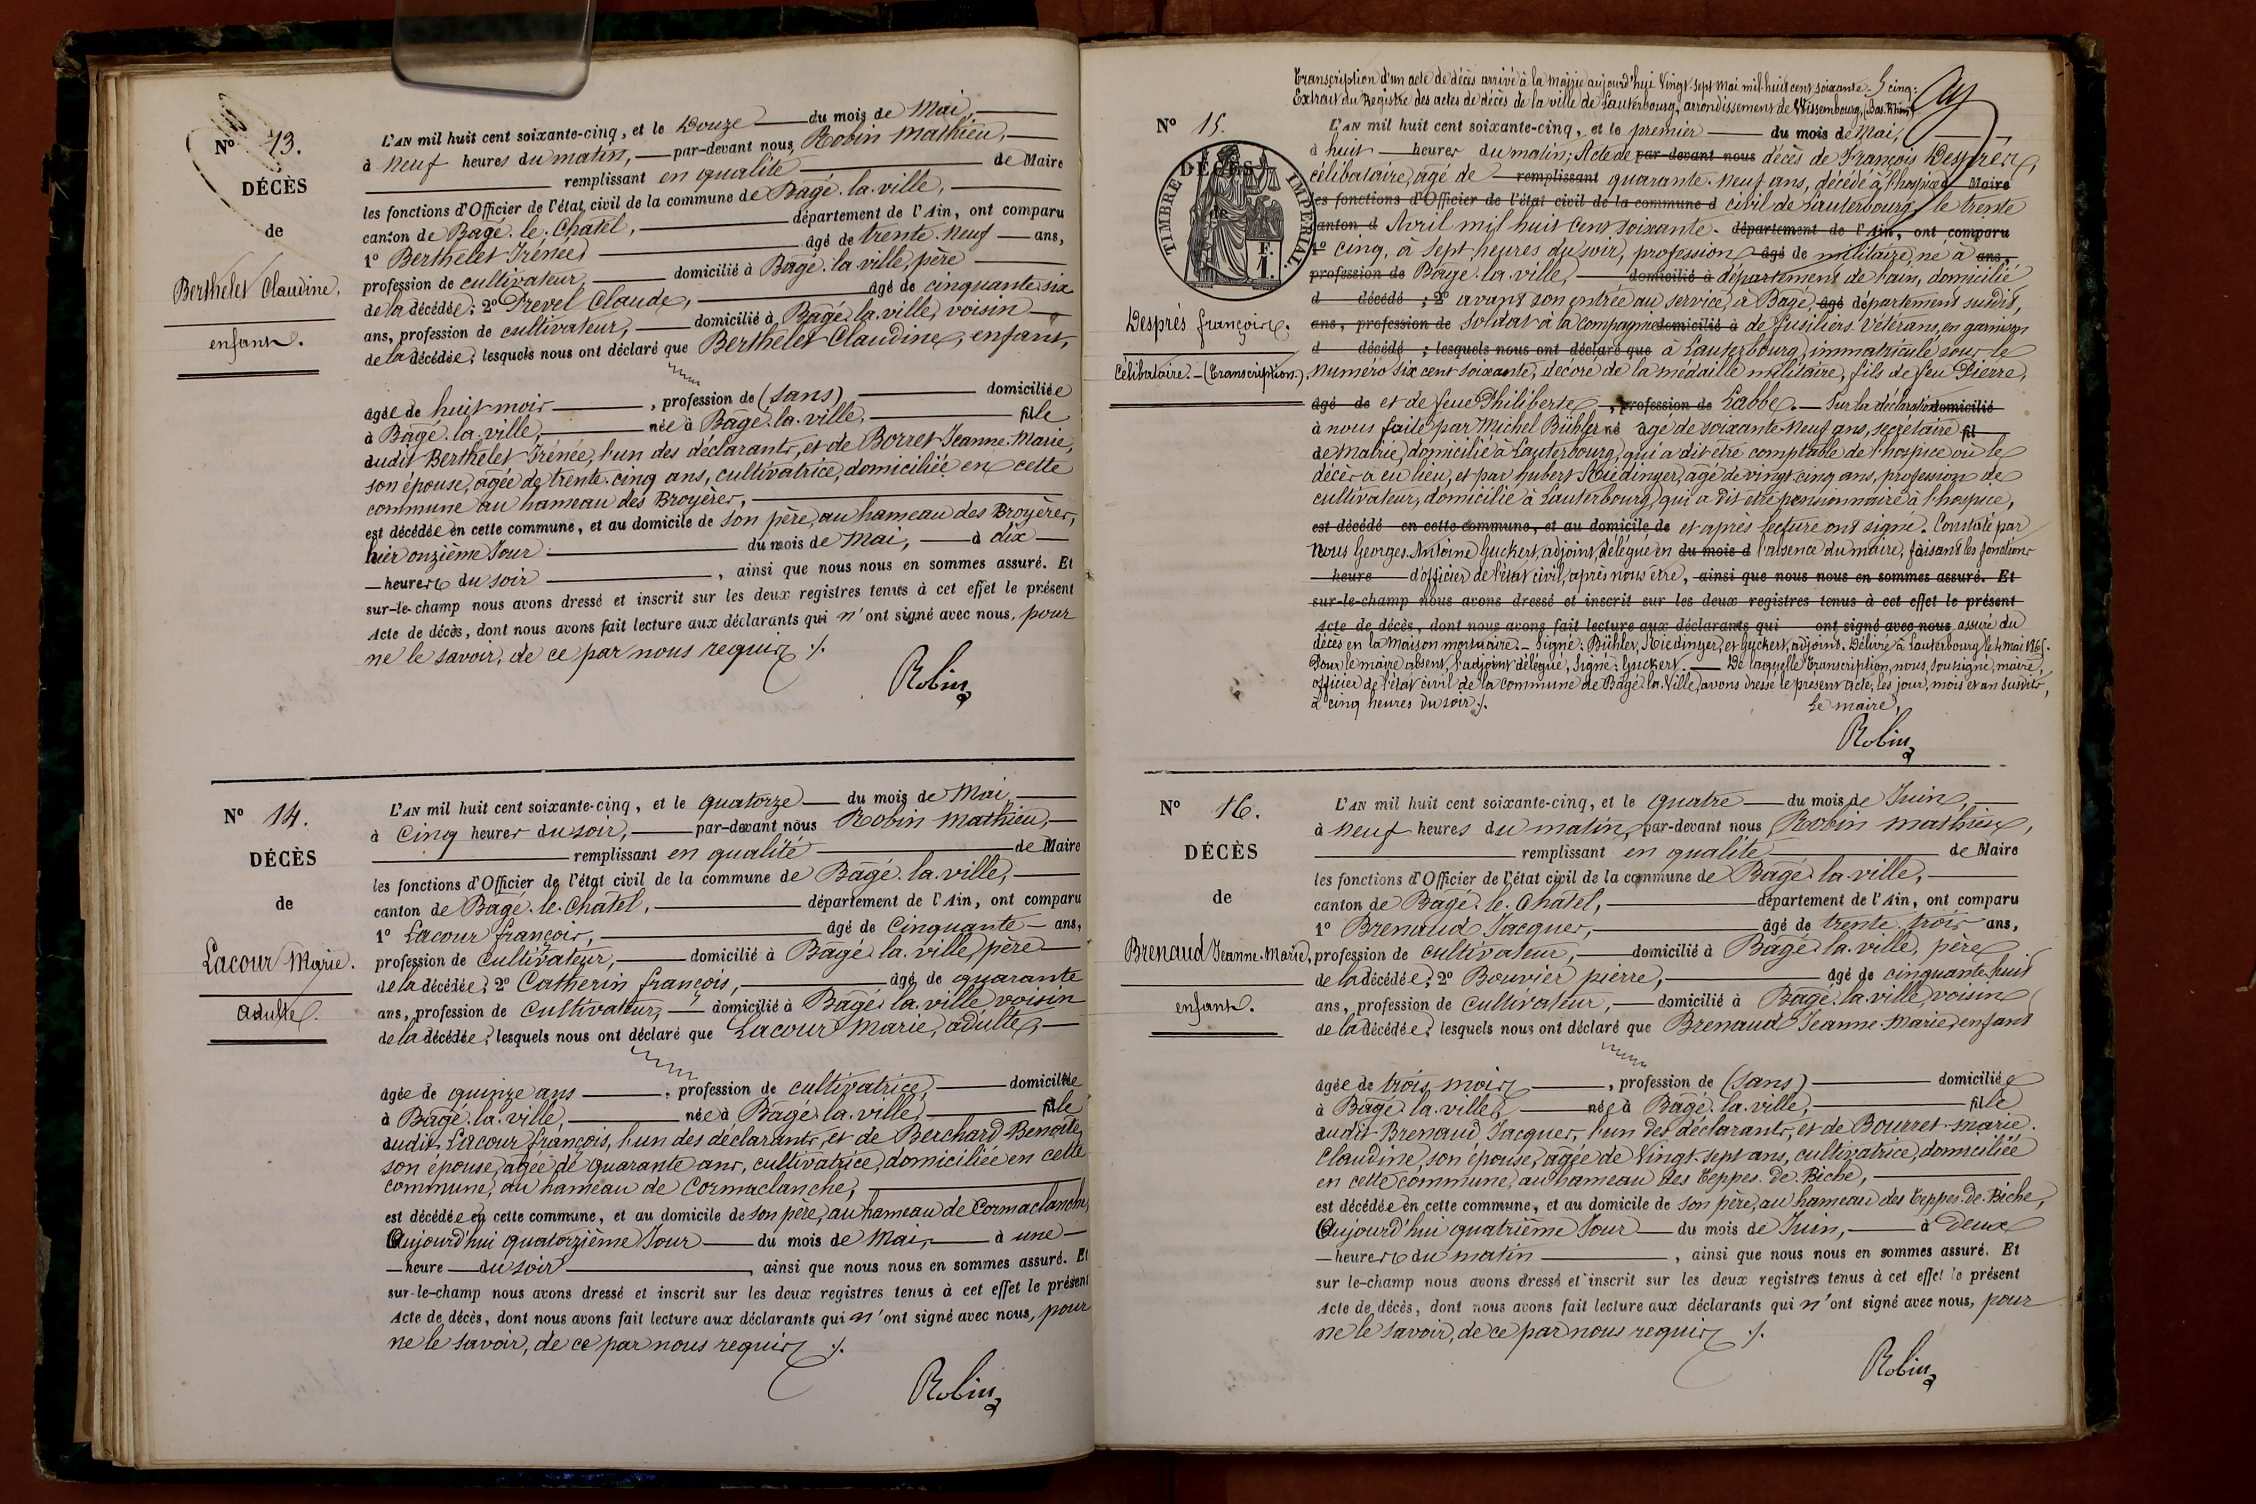 Nº 13.
DÉCÈS
de
Berthelet Claudine,
enfant.
L'AN mil huit cent soixante-cinq, et le Douze du mois de Mai,
à neuf heures du matin, par-devant nous Robin Mathieu,
remplissant en qualité de Maire
les fonctions d'Officier de l'état civil de la commune de Bagé-la-ville,
canton de Bagé-le-Chatel, département de l'Ain, ont comparu
1º Berthelet Irénée âgé de trente-neuf ans,
profession de cultivateur, domicilié à Bagé-la-ville, père
de la décédée; 2º Prevel Claude, âgé de cinquante six
ans, profession de cultivateur, domicilié à Bagé-la-ville, voisin
de la décédée, lesquels nous ont déclaré que Berthelet Claudine, enfant,
âgée de huit mois, profession de (sans) domiciliée
à Bagé-la-ville, née à Bagé-la-ville, fille
dudit Berthelet Irénée, l'un des déclarants, et de Borret Jeanne-Marie,
son épouse, âgée de trente-cinq ans, cultivatrice, domiciliée en cette
commune au hameau des Broyères,
est décédée en cette commune, et au domicile de son père, au hameau des Broyères,
hier onzième Jour du mois de Mai, à dix
heures du soir, ainsi que nous nous en sommes assuré. Et
sur-le-champ nous avons dressé et inscrit sur les deux registres tenus à cet effet le présent
Acte de décès, dont nous avons fait lecture aux déclarants qui n'ont signé avec nous, pour
ne le savoir, de ce par nous requis ./.
Robin
Nº 14.
DÉCÈS
de
Lacour Marie.
adulte.
L'AN mil huit cent soixante-cinq, et le quatorze du mois de Mai
à cinq heures du soir, par-devant nous Robin Mathieu,
remplissant en qualité de Maire
les fonctions d'Officier de l'état civil de la commune de Bagé-la-ville,
canton de Bagé-le-Chatel, département de l'Ain, ont comparu
1º Lacour françois, âgé de Cinquante ans,
profession de cultivateur, domicilié à Bagé-la-ville, père
de la décédée; 2º Catherin françois, âgé de quarante
ans, profession de cultivateur, domicilié à Bagé-la-ville voisin
de la décédée; lesquels nous ont déclaré que Lacour Marie, adulte,
âgée de quinze ans, profession de cultivatrice, domiciliée
à Bagé-la-ville, née à Bagé-la-ville, fille
dudit Lacour françois, l'un des déclarants, et de Berchard Benoite,
son épouse, âgée de quarante ans, cultivatrice, domiciliée en cette
commune, au hameau de Cormaclanche,
est décédée en cette commune, et au domicile de son père, au hameau de Cormaclanche,
Aujourd'hui quatorzième Jour du mois de Mai, à une
heure du soir, ainsi que nous nous en sommes assuré. Et
sur-le-champ nous avons dressé et inscrit sur les deux registres tenus à cet effet le présent
Acte de décès, dont nous avons fait lecture aux déclarants qui n'ont signé avec nous, pour
ne le savoir, de ce par nous requis ./.
Robin
Transcription d'un acte de décès arrivé à la mairie aujourd'hui Vingt-sept Mai mil-huit cent soixante-cinq:
Extrait du Registre des actes de décès de la ville de Lauterbourg, arrondissement de Wissembourg, (Bas-Rhin)
Nº 15.
DÉCÈS
de
TIMBRE IMPÉRIAL.
F. 1.
Desprès françois.
Célibataire. - (Transcription.)
L'AN mil huit cent soixante-cinq, et le premier du mois de Mai,
à huit heures du matin; Acte de par-devant nous décès de François Desprès,
célibataire, âgé de remplissant quarante-neuf ans, décédé à l'hospice Maire
les fonctions d'Officier de l'état civil de la commune d civil de Lauterbourg, le trente
canton d Avril mil huit cent soixante- département de l'Ain, ont comparu
1º cinq, à sept heures du soir, profession âgé de militaire, né à ans,
profession de Bagé-la-ville, domicilié à département de l'ain, domicilié
d décédé; 2º avant son entrée au service, à Bagé, âgé département susdit,
ans, profession de soldat à la compagnie domicilié à de fusiliers Vétérans, en garnison
d décédé; lesquels nous ont déclaré que à Lauterbourg, immatriculé sous le
numéro six cent soixante, décoré de la médaille militaire, fils de feu Pierre,
âgé de et de feue Philiberte, profession de Labbe. - Sur la déclaration domicilié
à nous faite par Michel Bühler né âgé de soixante-neuf ans, secrétaire fil
de Mairie, domicilié à Lauterbourg, qui a dit être comptable de l'hospice où le
décès a eu lieu, et par hubert Riedinger, âgé de vingt-cinq ans, profession de
cultivateur, domicilié à Lauterbourg, qui a dit être pensionnaire à l'hospice,
est décédé en cette commune, et au domicile de et après lecture ont signé. Constaté par
Nous Georges-Antoine Guckert, adjoint, délégué en du mois d l'absence du maire, faisant les fonctions
heure d'officier de l'état civil, après nous être, ainsi que nous nous en sommes assuré. Et
sur-le-champ nous avons dressé et inscrit sur les deux registres tenus à cet effet le présent
Acte de décès, dont nous avons fait lecture aux déclarants qui ont signé avec nous assuré du
décès en la Maison mortuaire. - Signé: Bühler, Riedinger, et Guckert, adjoint. Délivré à Lauterbourg le 4 mai 1865.
Pour le maire absent, l'adjoint délégué, Signé: Guckert. - De laquelle Transcription, nous, soussigné, maire,
officier de l'état civil de la commune de Bagé-la-Ville, avons dressé le présent acte, les jour, mois et an susdits,
à cinq heures du soir ./.
Le maire,
Robin
Nº 16.
DÉCÈS
de
Brenaud Jeanne-Marie,
enfant.
L'AN mil huit cent soixante-cinq, et le quatre du mois de Juin,
à neuf heures du matin, par-devant nous Robin mathieu,
remplissant en qualité de Maire
les fonctions d'Officier de l'état civil de la commune de Bagé-la-ville,
canton de Bagé-le-Chatel, département de l'Ain, ont comparu
1º Brenaud Jacques, âgé de trente-trois ans,
profession de cultivateur, domicilié à Bagé-la-ville, père
de la décédée; 2º Bouvier pierre, âgé de cinquante huit
ans, profession de cultivateur, domicilié à Bagé-la-ville, voisin
de la décédée; lesquels nous ont déclaré que Brenaud Jeanne-Marie, enfant
âgée de trois mois, profession de (sans) domiciliée
à Bagé-la-ville, née à Bagé-la-ville, fille
dudit Brenaud Jacques, l'un des déclarants, et de Bourret marie-
Claudine, son épouse, âgée de Vingt-sept ans, cultivatrice, domiciliée
en cette commune, au hameau des Teppes-de-Biche,
est décédée en cette commune, et au domicile de son père, au hameau des Teppes-de-Biche,
Aujourd'hui quatrième Jour du mois de Juin, à Deux
heures du matin, ainsi que nous nous en sommes assuré. Et
sur le-champ nous avons dressé et inscrit sur les deux registres tenus à cet effet le présent
Acte de décès, dont nous avons fait lecture aux déclarants qui n'ont signé avec nous, pour
ne le savoir, de ce par nous requis ./.
Robin